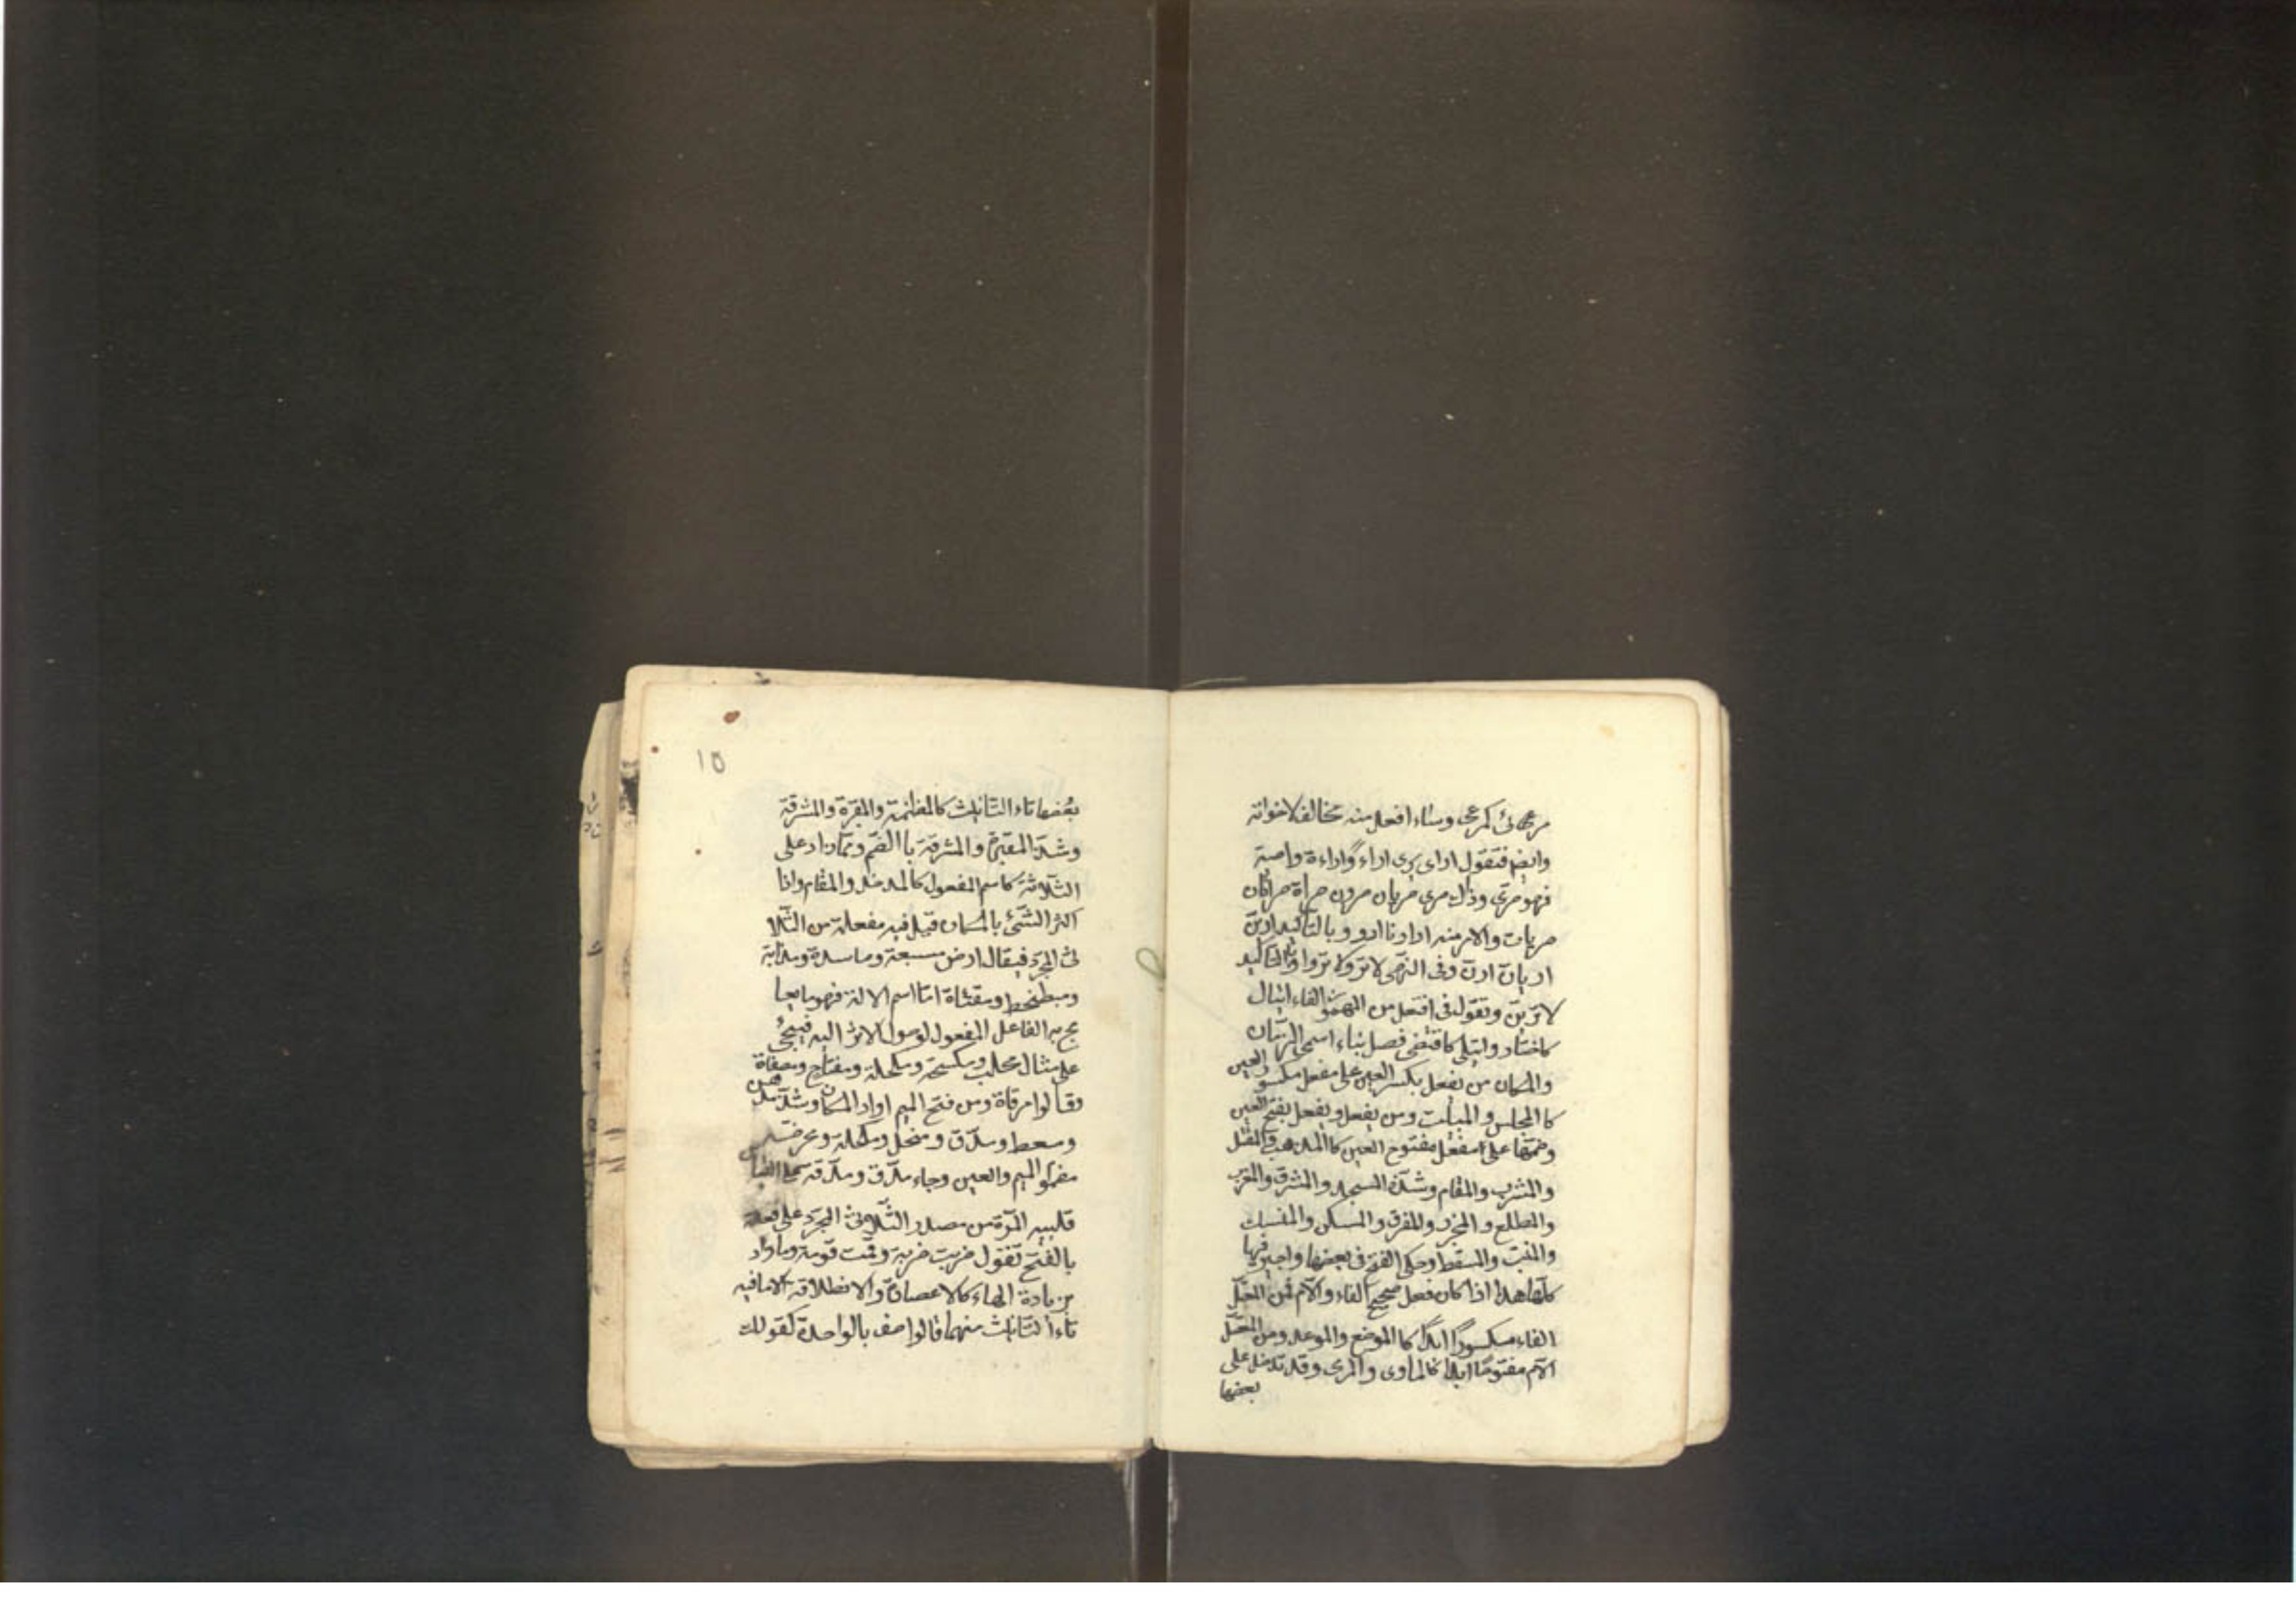 مرعى كمرعى وبناء افعل منه مخالف لاخواته
وايضا فتقول ارى يرى اراءً واراءة واصبة
فهو مرى وذاك مرى مريان مرون مراة مراتان
مريات والامر منه ار اريا اروا وبالتاكيد ارين
اريان ارن وفى النهى لا تر ولا تروا وبالتاكيد
لا ترين وتقول فى افتعل من المهموز الفاء ايتال
كاختار وايتلى كاقتضى فصل بناء اسمى الزمان
والمكان من يفعل بكسر العين على مفعل مكسور العين
كا المجلس والمبيت ومن يفعل ويفعل بفتح العين
وضمها على مفعل مفتوح العين كا المذهب والمقتل
والمشرب والمقام وشذ المسجد والمشرق والمغرب
والمطلع والمجزر والمفرق والمسكن والمنسك
والمنبت والمسقط وحكى الفتح فى بعضها واجيز فيها
كلها هذا اذا كان فعل صحيح الفاء والآم فمن المعتل
الفاء مكسوراً ابداً كا الموضع والموعد ومن المعتل
الآم مفتوحًا ابدا كالماوى والمرمى وقد تدخل على
بعضها
١٥
بعضها تاء التانيث كالمظنة والمقبرة والمشرقة
وشذ المقبرة والمشرقة با الضم ومما زاد على
الثلاثة كاسم المفعول كالمدخل والمقام واذا
اكثر الشئ بالمكان قيل فيه مفعلة من الثلا
ثى المجرد فيقال ارض مسبعة وماسدة ومذابة
ومبطخة ومقثاة اما اسم الالة فهو ما يعا
لج به الفاعل المفعول لوصول الاثر اليه فيجئ
على مثال محلب ومكسحة ومكحلة ومفتاح ومصفاة
وقالوا مرقاة ومن فتح الميم اراد المكان وشذ مدهن
ومسعط ومدق ومنخل ومكحلة ومحرضة
مضموم الميم والعين وجاء مدق ومدقة على القيا
تنبيه المرة من مصدر الثلاثى المجرد على فعلة
بالفتح تقول ضربت ضربة وقمت قومة ومما زاد
بزيادة الهاء كالاعطاة والانطلاقة الا ما فيه
تاء التانيث منهما فالوصف بالواحدة كقولك